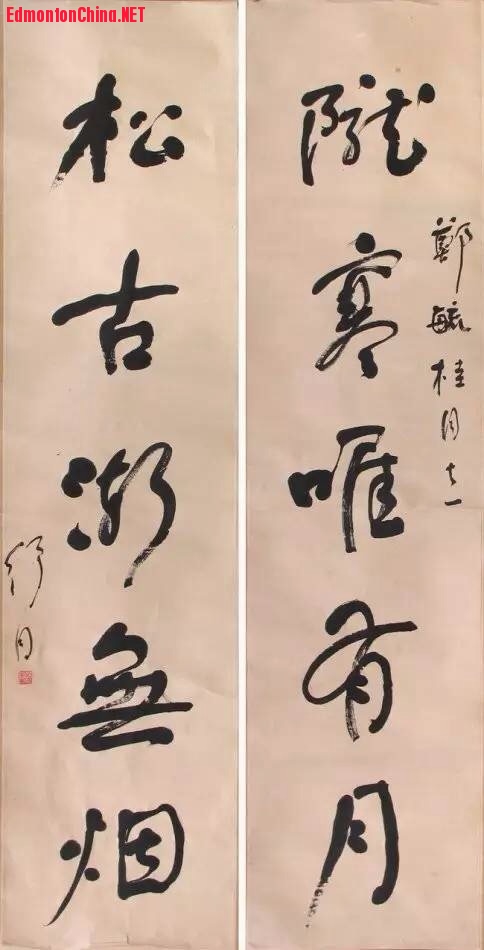 EdmontonChina.NET
鄭毓桂同志
隴寒唯有月
松古漸無烟
舒同